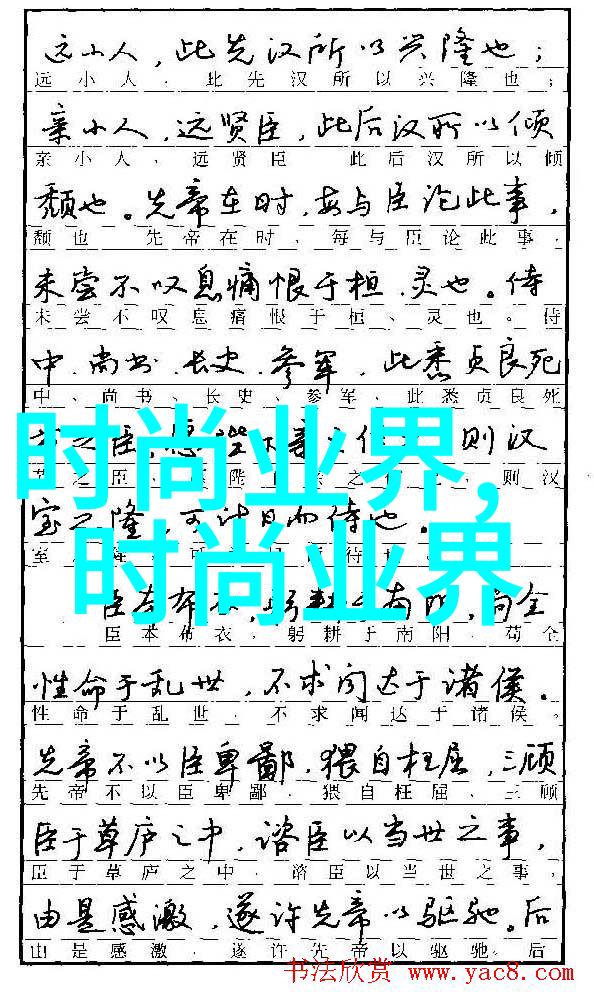 远小人，此先汉所以兴隆也；
远小人，此先汉所以兴隆也；
亲小人，远贤臣，此后汉所以倾
亲小人，远贤臣 此后汉所以倾
颓也。先帝在时，每与臣论此事，
颓也 先帝在时，每与臣论此事，
未尝不叹息痛恨于桓、灵也。侍
未尝不叹息痛恨于桓、灵也。侍
中、尚书、长史、参军，此悉贞良死
中、尚书、长史、参军，此悉贞良死
之臣，愿陛 则汉
之臣 陛 之 则汉
时尚业界,
室之隆，可计日而待也。
室 隆 待
时尚业界
臣本布衣，躬耕 南阳，苟全
臣本布衣，躬耕于南阳，苟全
性命于乱世，不求闻达于诸侯。
性命于乱世，不求闻达于诸侯。
先帝不以臣卑鄙，猥自枉屈，三顾
先帝不以臣卑鄙，猥自枉屈、三顾
臣于草庐之中，谘臣以当世之事，
臣于草庐之中，谘臣以当世之事，
由是感激，遂许先帝以驱驰。后
由是感激，遂许先帝以驱驰。后
书法欣赏 www.yac8.com